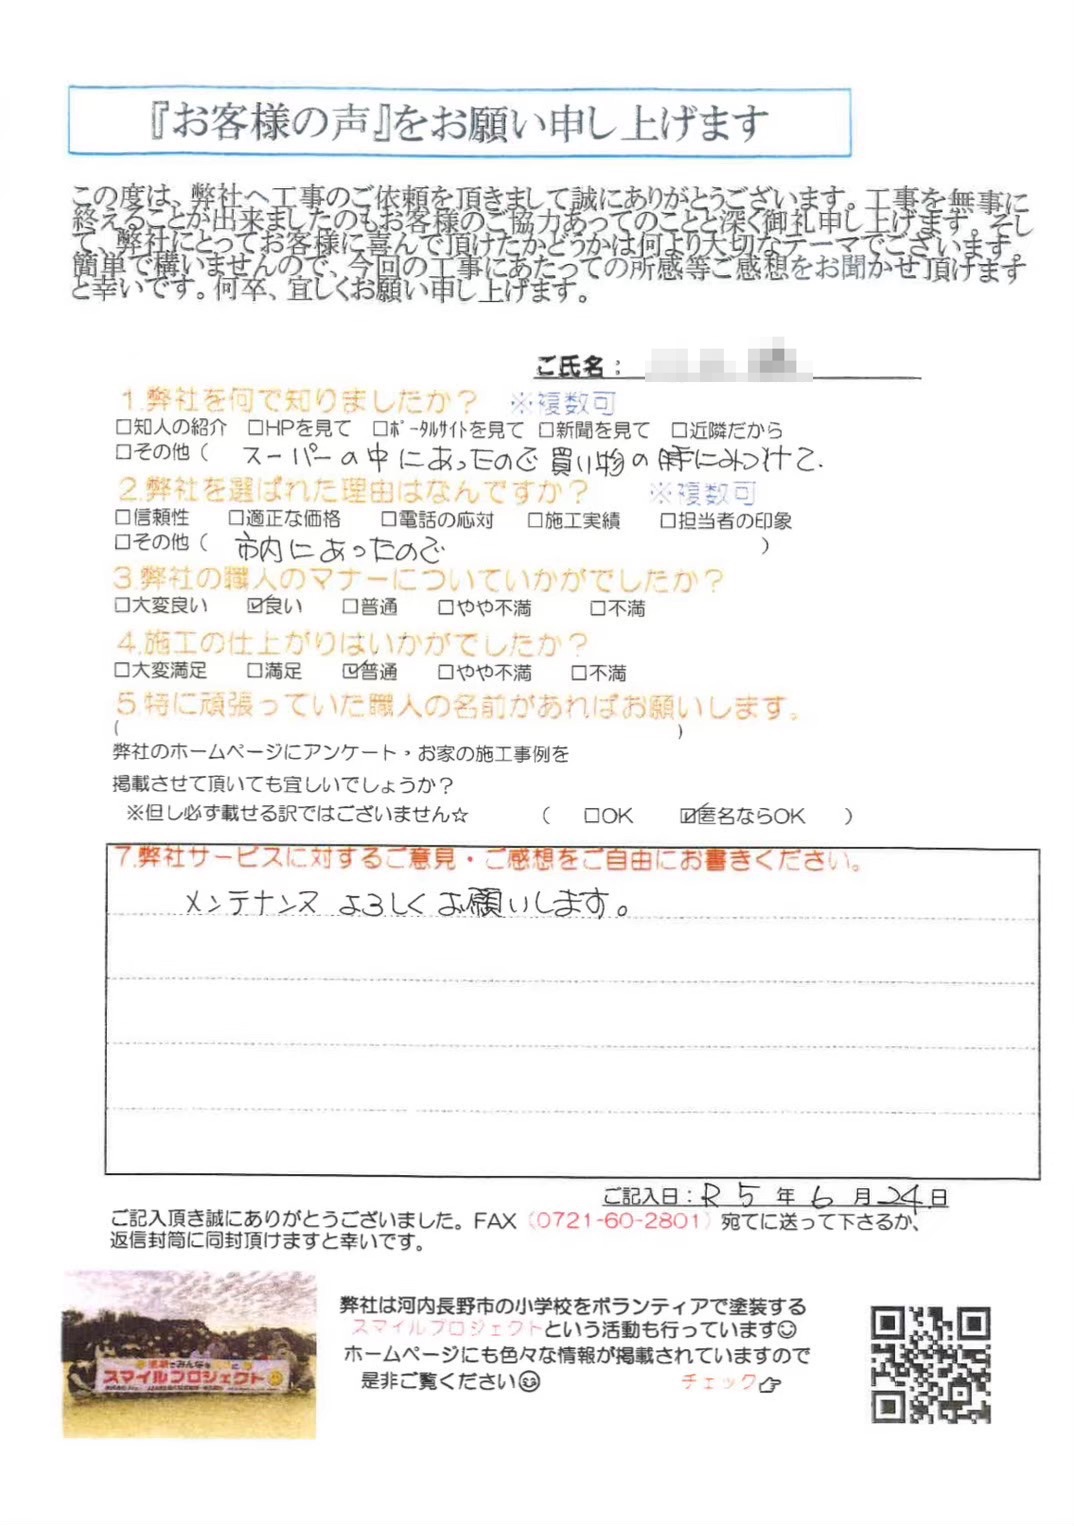 『お客様の声』をお願い申し上げます
この度は、弊社へ工事のご依頼を頂きまして誠にありがとうございます。工事を無事に
終えることが出来ましたのもお客様のご協力あってのことと深く御礼申し上げます。そし
て、弊社にとってお客様に喜んで頂けたかどうかは何より大切なテーマでございます。
簡単で構いませんので、今回の工事にあたっての所感等ご感想をお聞かせ頂けます
と幸いです。何卒、宜しくお願い申し上げます。
ご氏名：
1.弊社を何で知りましたか？ ※複数可
□知人の紹介 □HPを見て □ﾎﾟｰﾀﾙｻｲﾄを見て □新聞を見て □近隣だから
□その他（ スーパーの中にあったので買い物の時にみつけて.
2.弊社を選ばれた理由はなんですか？ ※複数可
□信頼性 □適正な価格 □電話の応対 □施工実績 □担当者の印象
□その他（ 市内にあったので ）
3.弊社の職人のマナーについていかがでしたか？
□大変良い ☑良い □普通 □やや不満 □不満
4.施工の仕上がりはいかがでしたか？
□大変満足 □満足 ☑普通 □やや不満 □不満
5.特に頑張っていた職人の名前があればお願いします。
（ ）
弊社のホームページにアンケート・お家の施工事例を
掲載させて頂いても宜しいでしょうか？
※但し必ず載せる訳ではございません☆ （ □OK ☑匿名ならOK ）
7.弊社サービスに対するご意見・ご感想をご自由にお書きください。
メンテナンスよろしくお願いします。
ご記入日：R 5 年 6 月 24 日
ご記入頂き誠にありがとうございました。FAX（0721-60-2801）宛てに送って下さるか、
返信封筒に同封頂けますと幸いです。
スマイルプロジェクト
弊社は河内長野市の小学校をボランティアで塗装する
スマイルプロジェクトという活動も行っています☺
ホームページにも色々な情報が掲載されていますので
是非ご覧ください😊 チェック👉